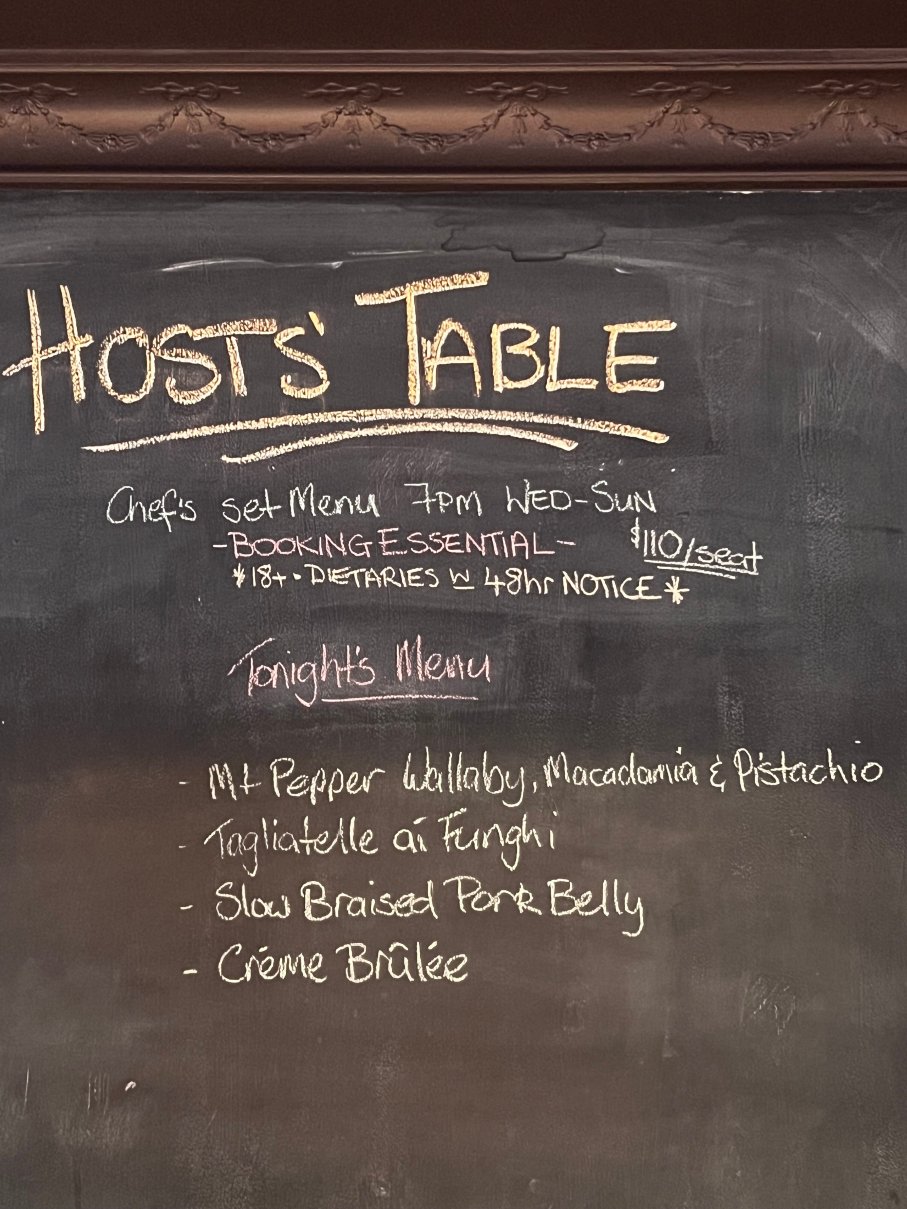 HOSTS' TABLE
Chef's set Menu 7PM WED-SUN
-BOOKING ESSENTIAL- $110/seat
*18+ • DIETARIES W 48hr NOTICE*
Tonight's Menu
- Mt Pepper Wallaby, Macadamia & Pistachio
- Tagliatelle ai Funghi
- Slow Braised Pork Belly
- Créme Brûlée